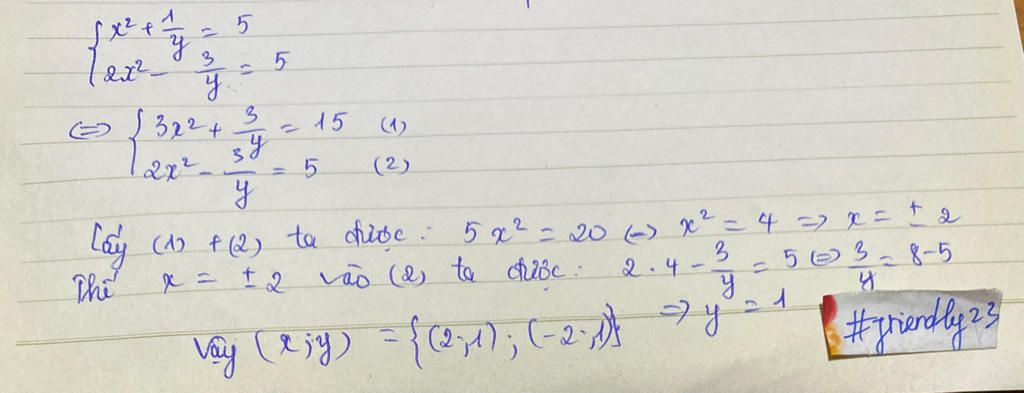 {x² + 1/y = 5
2x² - 3/y = 5
<=> {3x² + 3/y = 15 (1)
2x² - 3/y = 5 (2)
Lấy (1) + (2) ta được: 5x² = 20 <=> x² = 4 => x = ± 2
Thế x = ± 2 vào (2) ta được: 2 . 4 - 3/y = 5 <=> 3/y = 8 - 5
=> y = 1
Vậy (x;y) = {(2;1); (-2;1)}
#friendly23